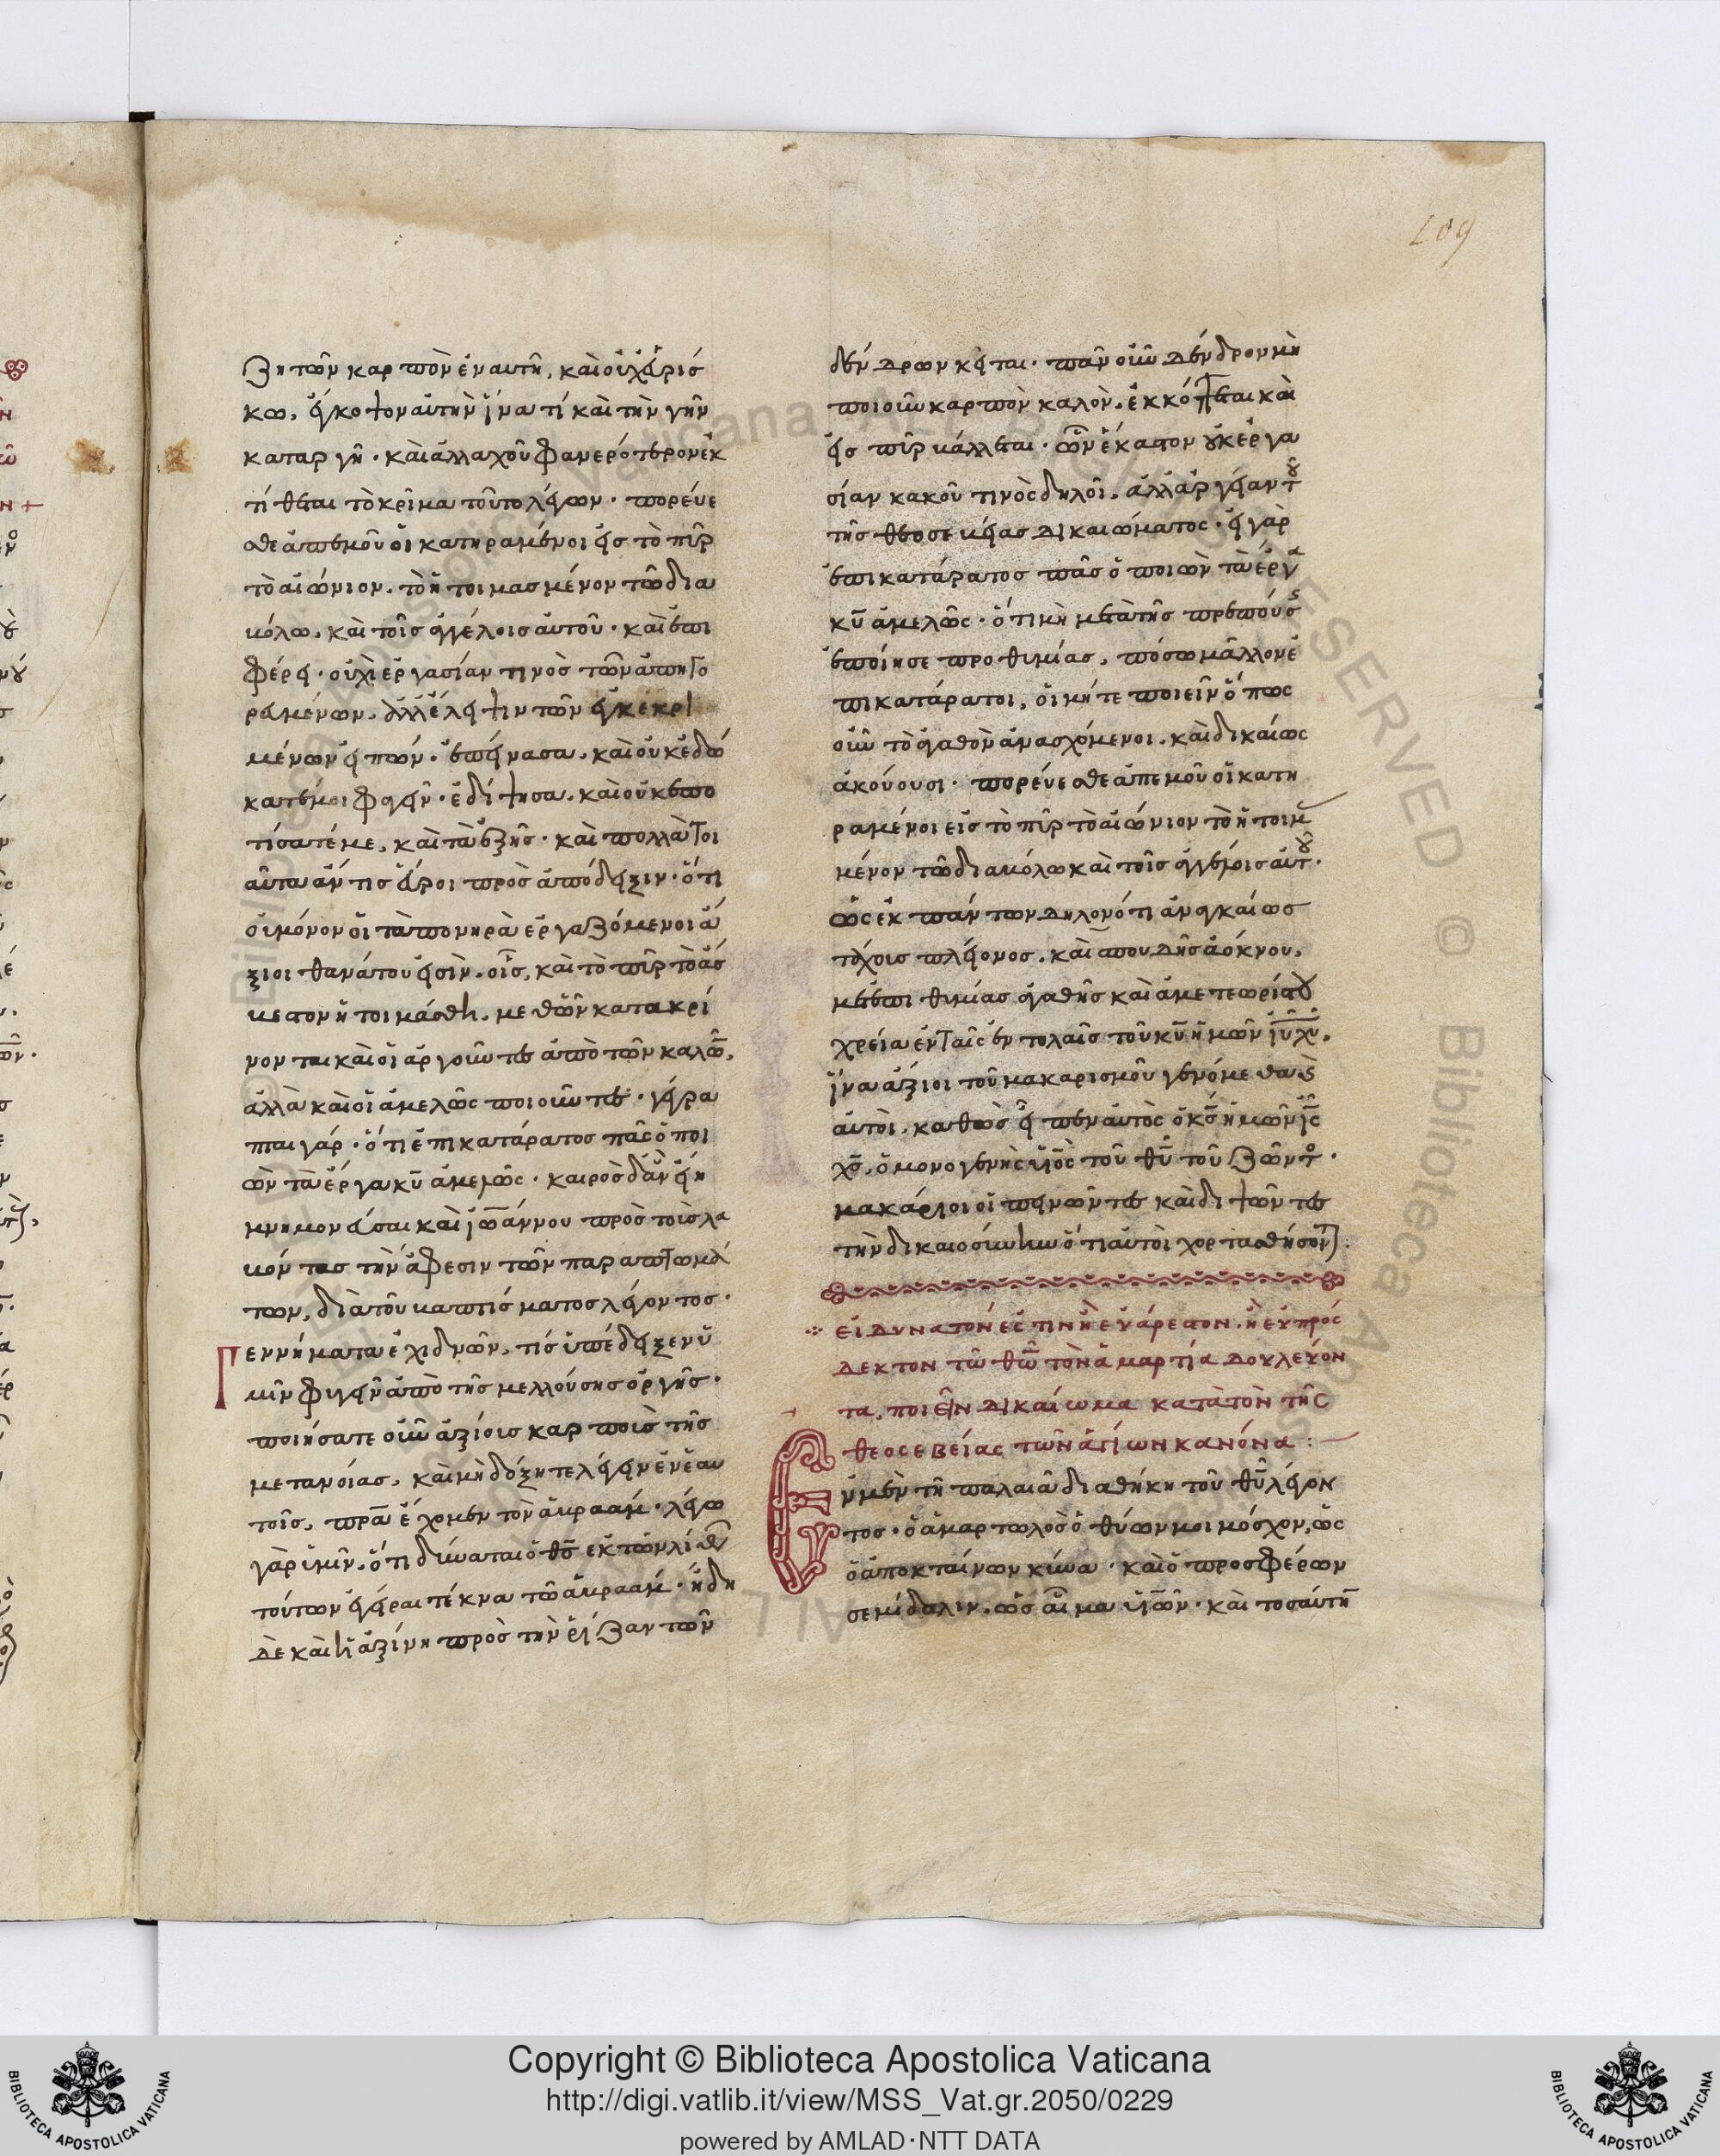 109
ζητῶν καρπὸν ἐν αυτῆ, καὶ οὐχ εὑρίσ
κω, ἔκκοψον αὐτὴν ἵνα τί καὶ τὴν γῆν
καταργῆ · καὶ ἀλλαχοῦ φανερώτερον ἐκ
τίθεται τὸ κρῖμα τοῦτο λέγων · πορεύε
σθε ἀπεμοῦ οἱ κατηραμένοι εἰς τὸ πῦρ
τὸ αἰώνιον. τὸ ἡτοιμασμένον τῶ δια
βόλω, καὶ τοῖς ἀγγέλοις αὐτοῦ · καὶ ἐπι
φέρει · οὐχὶ ἐργασίαν τινὸς τῶν ἀπηγο
ρευμένων, ἀλλ' ἔλλειψιν τῶν
μένων εἰπών · ἐπείνασα, καὶ οὐκ ἐδώ
κατέ μοι φαγεῖν · ἐδίψησα, καὶ οὐκ ἐπο
τίσατέ με, καὶ τὰ ἑξῆς · καὶ πολλὰ τοι
αῦτα ἄν τις εὕροι πρὸς ἀπόδειξιν · ὅτι
οὐ μόνον οἱ τὰ πονηρὰ ἐργαζόμενοι ἄ
ξιοι θανάτου εἰσὶν. οἷς, καὶ τὸ πῦρ τὸ ἄσ
βεστον ἡτοιμάσθη, μεθ' ὧν κατακρί
νονται καὶ οἱ ἀργοῦντες ἀπὸ τῶν καλῶν,
ἀλλὰ καὶ οἱ ἀμελῶς ποιοῦντες · γέγρα
πται γάρ · ὅτι ἐπικατάρατος πᾶς ὁ ποι
ῶν τὰ ἔργα κυ ἀμελῶς · καιρὸς δ' ἂν εἴη
μνημονεῦσαι καὶ ἰωάννου πρὸς τοὺς λα
βόντας τὴν ἄφεσιν τῶν παραπτωμά
των, διὰ τοῦ βαπτίσματος λέγοντος ·
Γεννήματα ἐχιδνῶν, τίς ὑπέδειξεν ὑ
μῖν φυγεῖν ἀπὸ τῆς μελλούσης ὀργῆς ·
ποιήσατε οὖν ἀξίοις καρποὺς τῆς
μετανοίας, καὶ μὴ δόξητε λέγειν ἐν ἑαυ
τοῖς, πρα ἔχομεν τὸν ἀβραάμ · λέγω
γὰρ ὑμῖν, ὅτι δύναται ὁ θς ἐκ τῶν λίθων
τούτων ἐγεῖραι τέκνα τῶ ἀβραάμ · ἤδη
δὲ καὶ ἡ ἀξίνη πρὸς τὴν ῥίζαν τῶν
δένδρων κεῖται · πᾶν οὖν δένδρον μὴ
ποιοῦν καρπὸν καλὸν, ἐκκόπτεται καὶ
εἰς πῦρ βάλλεται · ὧν ἕκαστον οὐκ ἐργα
σίαν κακοῦ τινὸς δηλοῖ, ἀλλ' ἀργείαν τοῦ
τῆς θεοσεβείας δικαιώματος · εἰ γὰρ
ἐπικατάρατος πᾶς ὁ ποιῶν τὰ ἔργα
κυ ἀμελῶς · ὅτι μὴ μετὰ τῆς πρεπούσης
ἐποίησε προθυμίας, πόσω μᾶλλον ἐ
πικατάρατοι, οἱ μήτε ποιεῖν ὅπως
οὖν τὸ ἀγαθὸν ἀνασχόμενοι, καὶ δικαίως
ἀκούουσι · πορεύεσθε ἀπεμοῦ οἱ κατη
ραμένοι εἰς τὸ πῦρ τὸ αἰώνιον τὸ ἡτοιμασ
μένον τῶ διαβόλω καὶ τοῖς ἀγγέλοις αὐτοῦ ·
ὡς ἐκ πάντων δηλονότι ἀναγκαίως
τόχοις πλείονος, καὶ σπουδῆς ἀόκνου,
μετ' ἐπιθυμίας ἀγαθῆς καὶ ἀμετεωρίστου
χρεία ἐν ταῖς ἐντολαῖς τοῦ κυ ἡμῶν ἰυ χυ,
ἵνα ἄξιοι τοῦ μακαρισμοῦ γενώμεθα καὶ
αὐτοὶ, καθὼς εἶπεν αὐτὸς ὁ κς ἡμῶν ἰς
χς, ὁ μονογενὴς υἱὸς τοῦ θυ τοῦ ζῶντος ·
μακάριοι οἱ πεινῶντες καὶ διψῶντες
τὴν δικαιοσύνην ὅτι αὐτοὶ χορτασθήσονται :
εἰ δυνατόν ἐστιν ἢ εὐάρεστον, ἢ εὐπρόσ
δεκτον τῶ θῶ τὸν ἁμαρτία δουλεύον
τα, ποιεῖν δικαίωμα κατὰ τὸν τῆς
θεοσεβείας τῶν ἁγίων κανόνα :
Ἐν μὲν τῆ παλαιᾶ διαθήκη τοῦ θυ λέγον
τος · ὁ ἁμαρτωλὸς ὁ θύων μοι μόσχον, ὡς
ὁ ἀποκταίνων κύνα · καὶ ὁ προσφέρων
σεμίδαλιν, ὡς αἷμα ὑῶν · καὶ τοσαύτη
Copyright © Biblioteca Apostolica Vaticana
http://digi.vatlib.it/view/MSS_Vat.gr.2050/0229
powered by AMLAD·NTT DATA
BIBLIOTECA APOSTOLICA VATICANA
BIBLIOTECA APOSTOLICA VATICANA